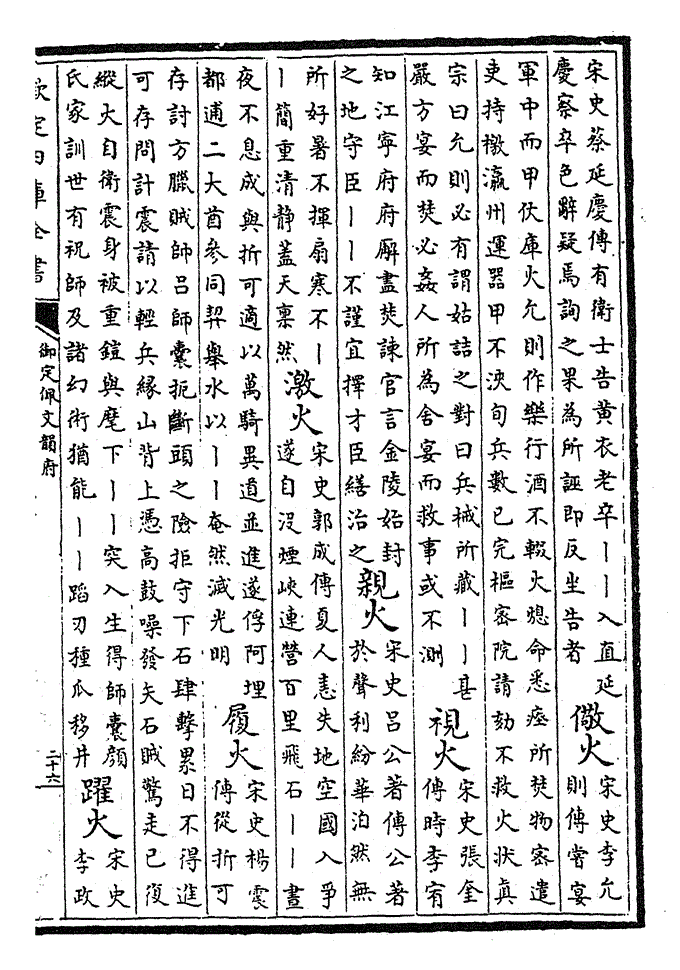 宋史蔡延慶傳有衛士告黃衣老卒丨丨入直延
慶察卒色辭疑焉詢之果為所誣即反坐告者
儆火
宋史李允
則傳嘗宴
軍中而甲仗庫火允則作樂行酒不輟火熄命悉瘞所焚物密遣
吏持檄瀛州運器甲不浹旬兵數已完樞密院請劾不救火狀真
宗曰允則必有謂姑詰之對曰兵械所藏丨丨甚
嚴方宴而焚必姦人所為舍宴而救事或不測
視火
宋史張奎
傳時李宥
知江寧府府廨盡焚諫官言金陵始封
之地守臣丨丨不謹宜擇才臣繕治之
親火
宋史呂公著傳公著
於聲利紛華泊然無
所好暑不揮扇寒不丨
丨簡重清靜蓋天稟然
激火
宋史郭成傳夏人恚失地空國入爭
遂自沒煙峽連營百里飛石丨丨晝
夜不息成與折可適以萬騎異道並進遂俘阿埋
都逋二大酋參同契舉水以丨丨奄然滅光明
履火
宋史楊震
傳從折可
存討方臘賊師呂師囊扼斷頭之險拒守下石肆擊累日不得進
可存問計震請以輕兵緣山背上憑高鼓噪發矢石賊驚走已復
縱火自衛震身被重鎧與麾下丨丨突入生得師囊顏
氏家訓世有祝師及諸幻術猶能丨丨蹈刃種瓜移井
躍火
宋史
李政
欽定四庫全書
御定佩文韻府
二十六